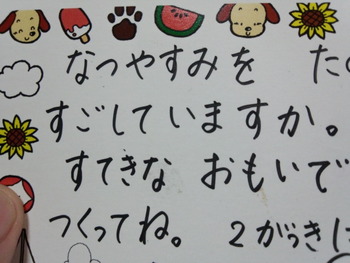 なつやすみを た
すごしていますか。
すてきな おもいで
つくってね。 2がっき